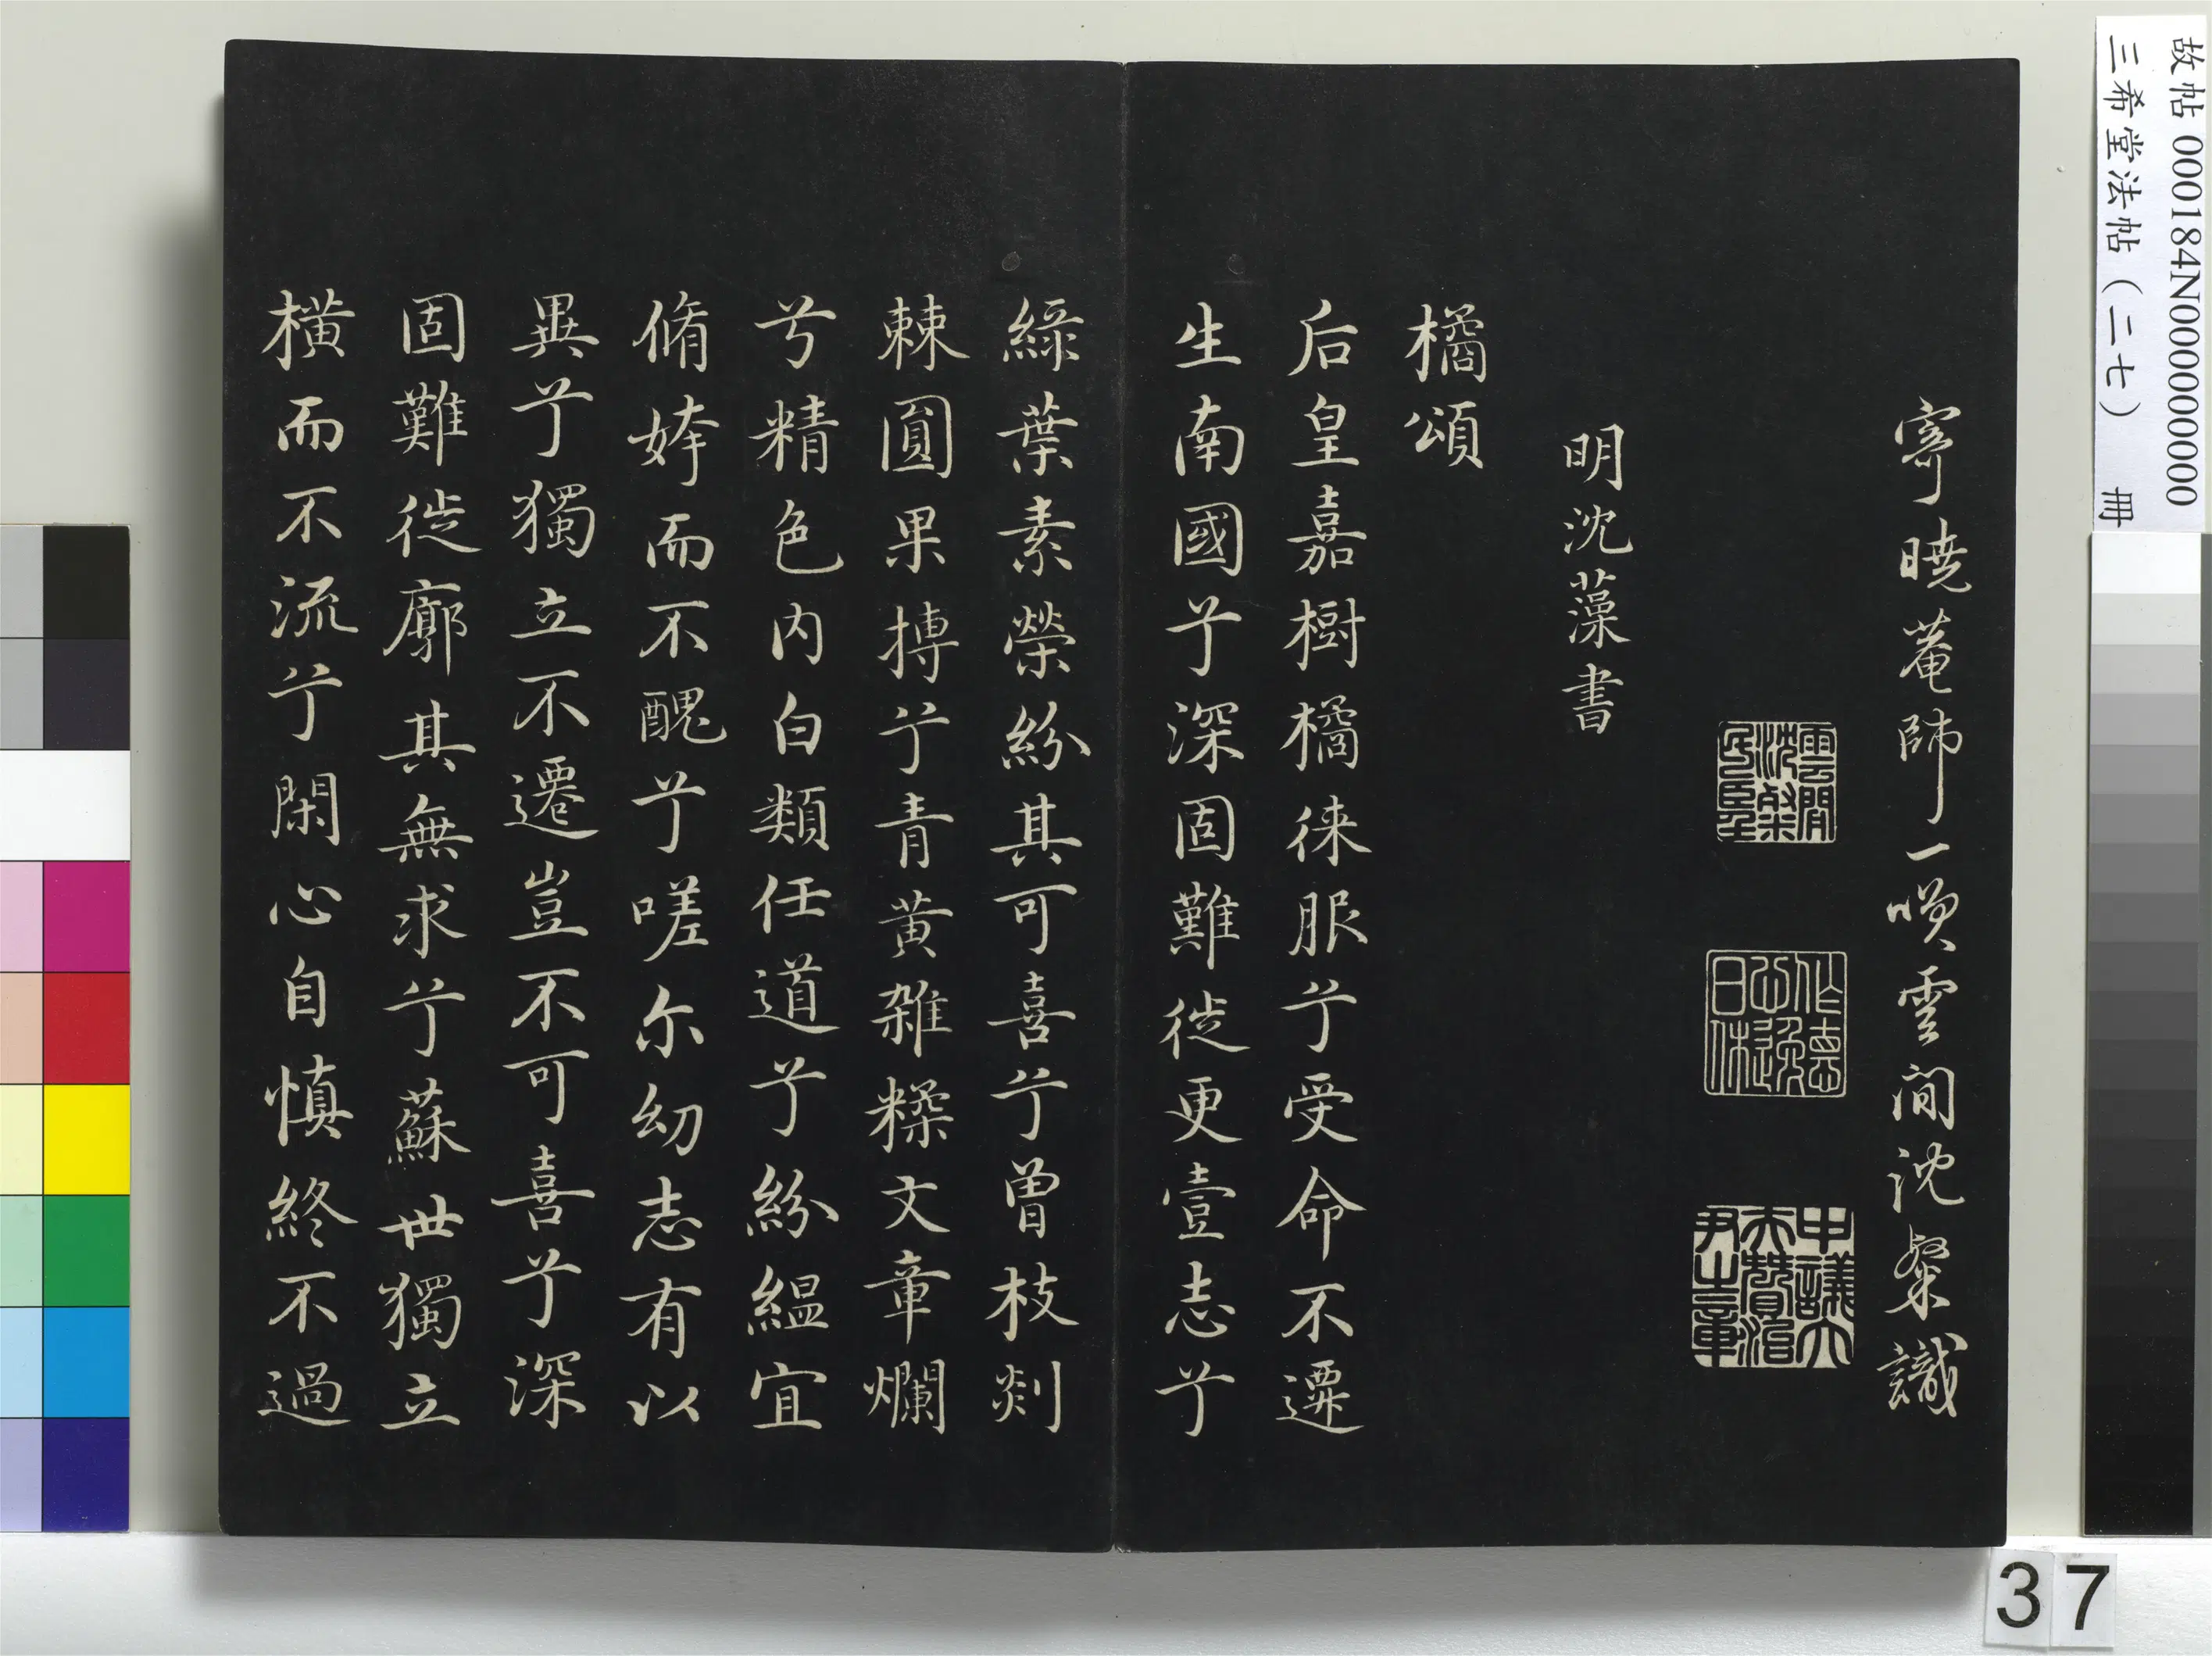 故帖 000184N000000000
三希堂法帖（二七） 冊
寄曉菴師一噗雲間沈粲識
雲間沈粲民望
作德心逸日休
中議大夫贊治尹之章
明沈藻書
橘頌
后皇嘉樹橘徠服兮受命不遷
生南國兮深固難徙更壹志兮
綠葉素榮紛其可喜兮曾枝剡
棘圓果摶兮青黃雜糅文章爛
兮精色内白類任道兮紛緼宜
脩姱而不醜兮嗟尔幼志有以
異兮獨立不遷豈不可喜兮深
固難徙廓其無求兮蘇世獨立
橫而不流兮閑心自慎終不過
37